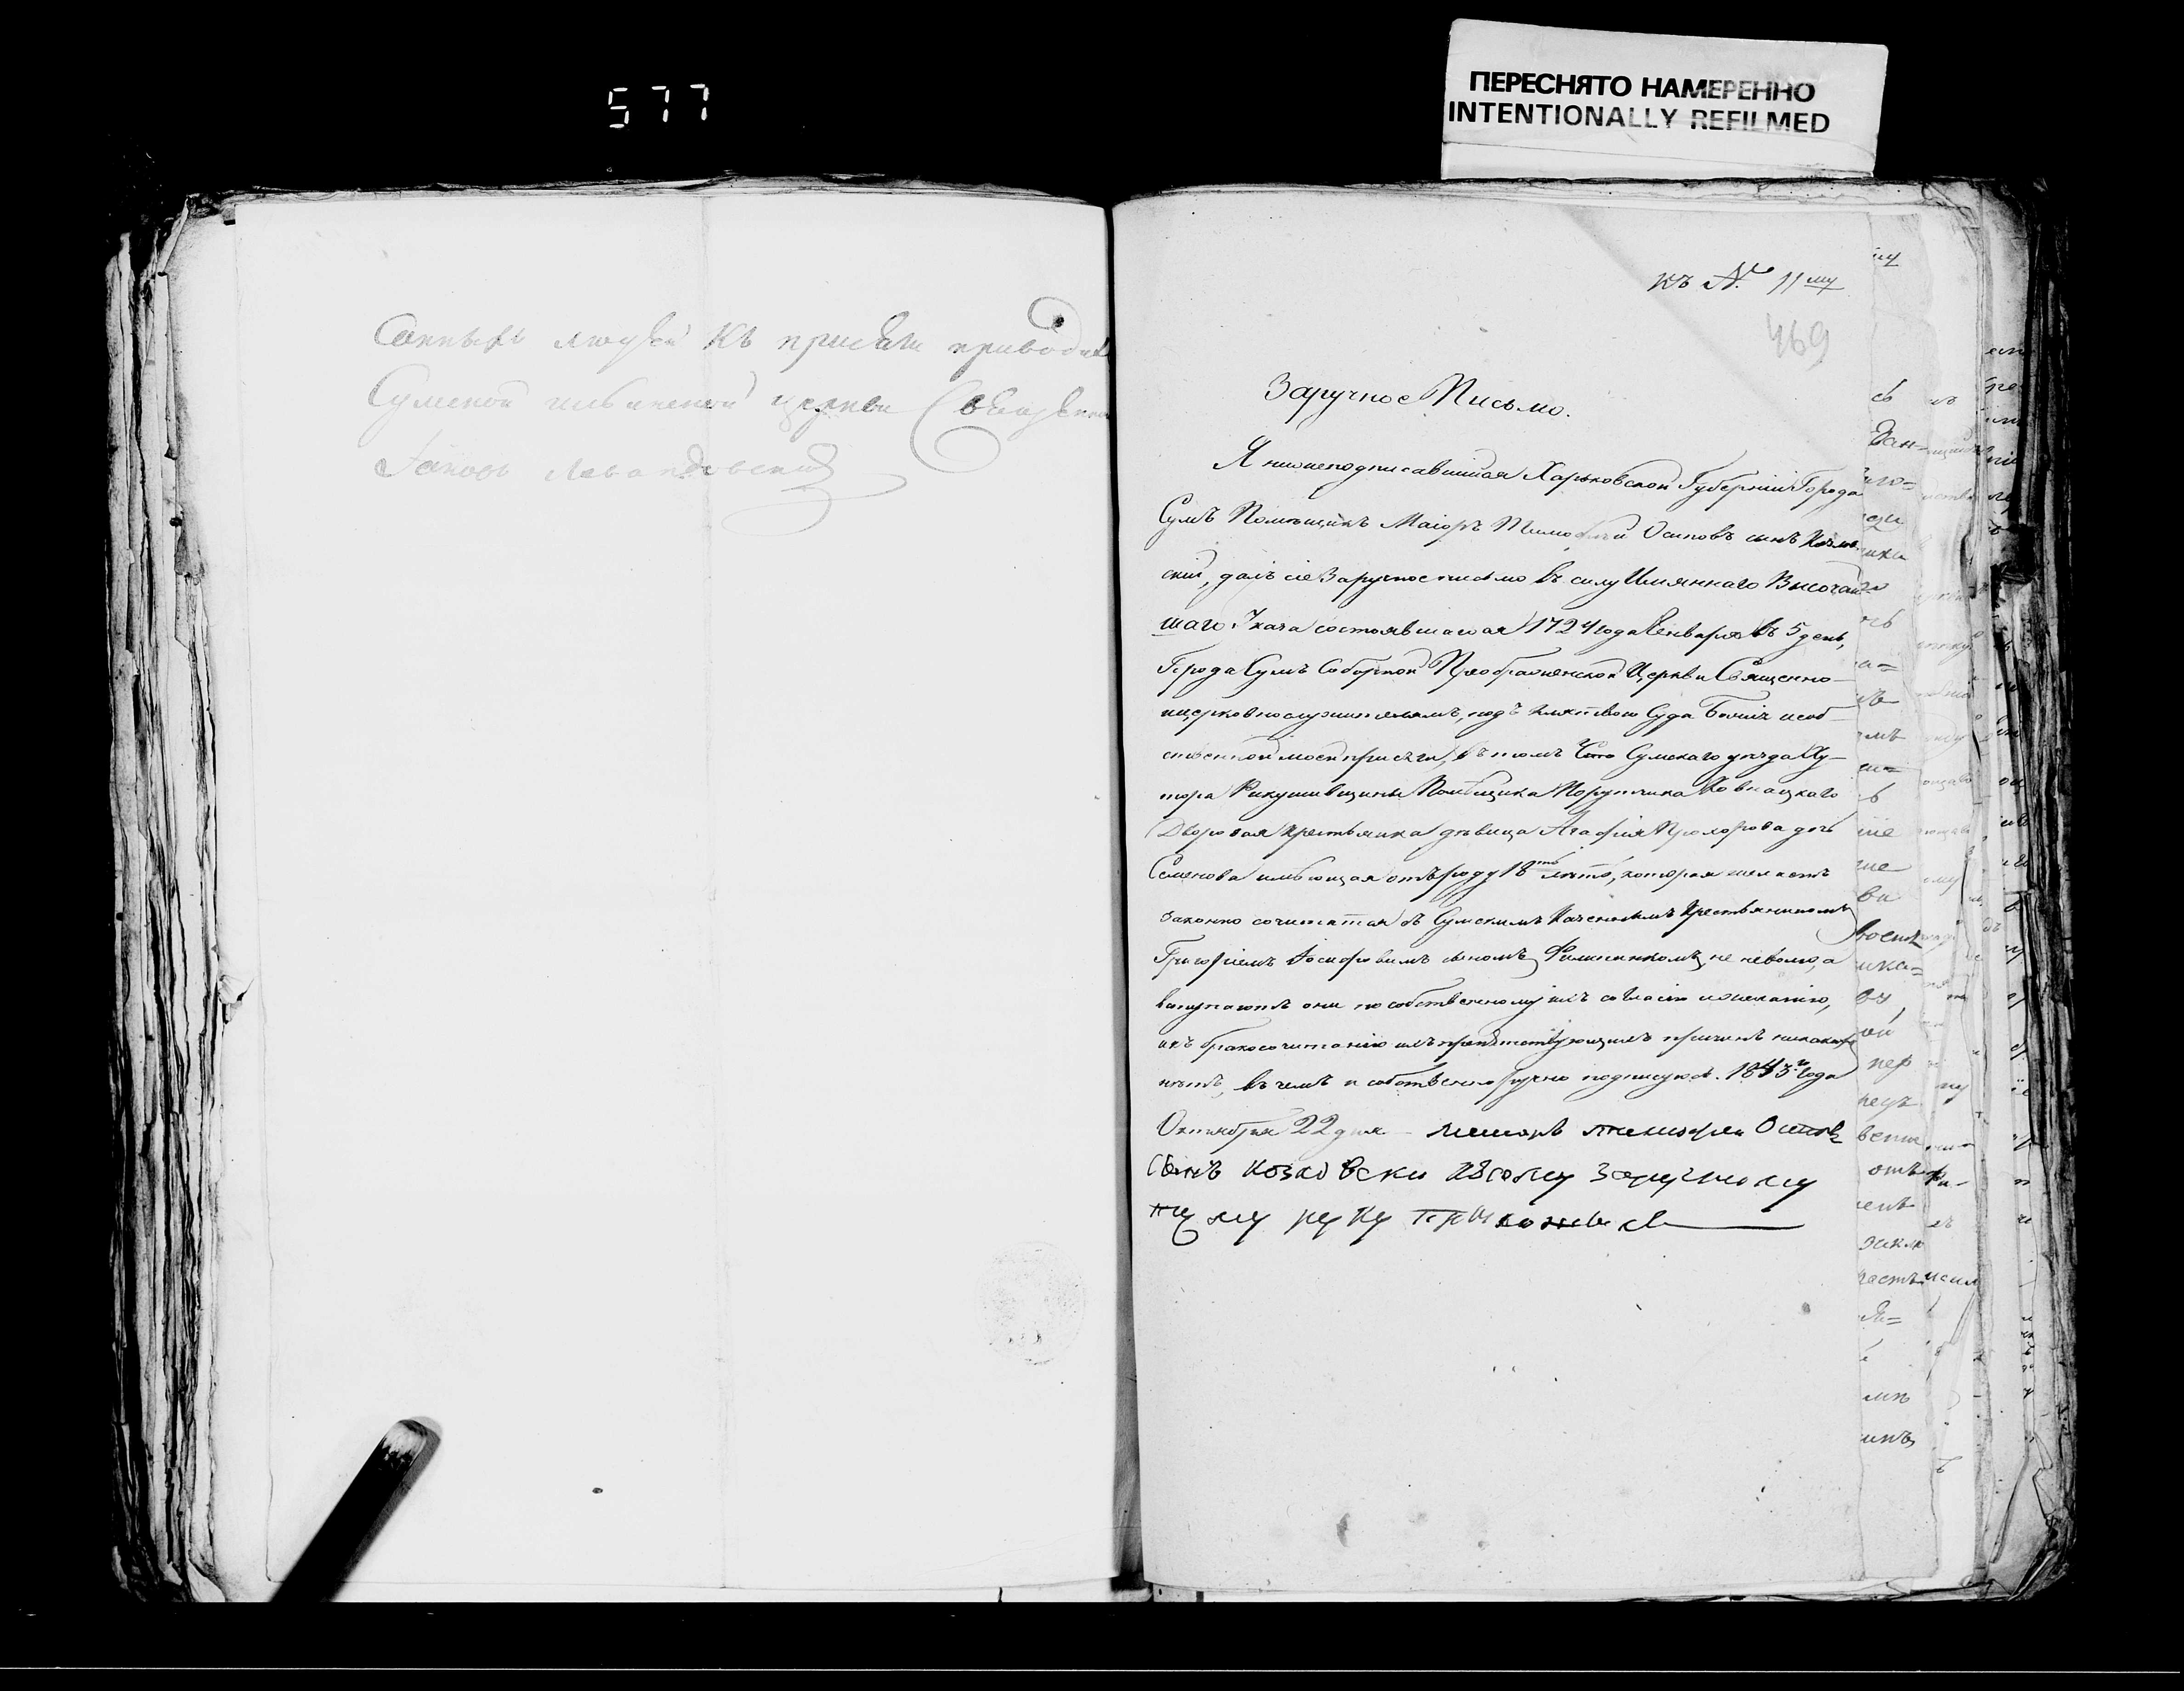 577
ПЕРЕСНЯТО НАМЕРЕННО
INTENTIONALLY REFILMED
людей къ присяги приводилъ
Сумской церкви Священникъ
Іаковъ Левандовский
къ № 11му
469
Заручное Письмо.
Я нижеподписавшийся Харьковской Губерніи Города
Сумъ Помѣщикъ Маіоръ Тимофей Осиповъ сынъ Козлов
скій, далъ сіе Заручное письмо въ силу Имяннаго Высочай
шаго Указа состоявшагося 1724 года Генваря въ 5 день,
Города Сумъ Соборной Преображенской Церкви Священно
ицерковнослужителямъ, подъ клятвою Суда Божія исоб
ственной моей присяги, въ томъ Что Сумскаго уѣзда Ху-
тора Помѣщика Порутчика Ковнацкаго
Дворовая Крестьянка дѣвица Агафія Прохорова дочь
Семенова имѣющая отъ роду 18ть лѣтъ, которая желаетъ
законно сочитатся съ Сумскимъ Казеннымъ Крестьяниномъ
Григоріемъ Іосифовымъ сыномъ не неволею, а
вступаютъ они по собственному ихъ согласію ижеланію,
икъ бракосочитанію ихъ препятствующихъ причинъ никакихъ
нѣтъ, въ чемъ и собственноручно подписуюсь. 1843го года
Октября 22 дня тимофеи Осиповъ
Сынъ козловски ксему заручному
писму руку приложилъ